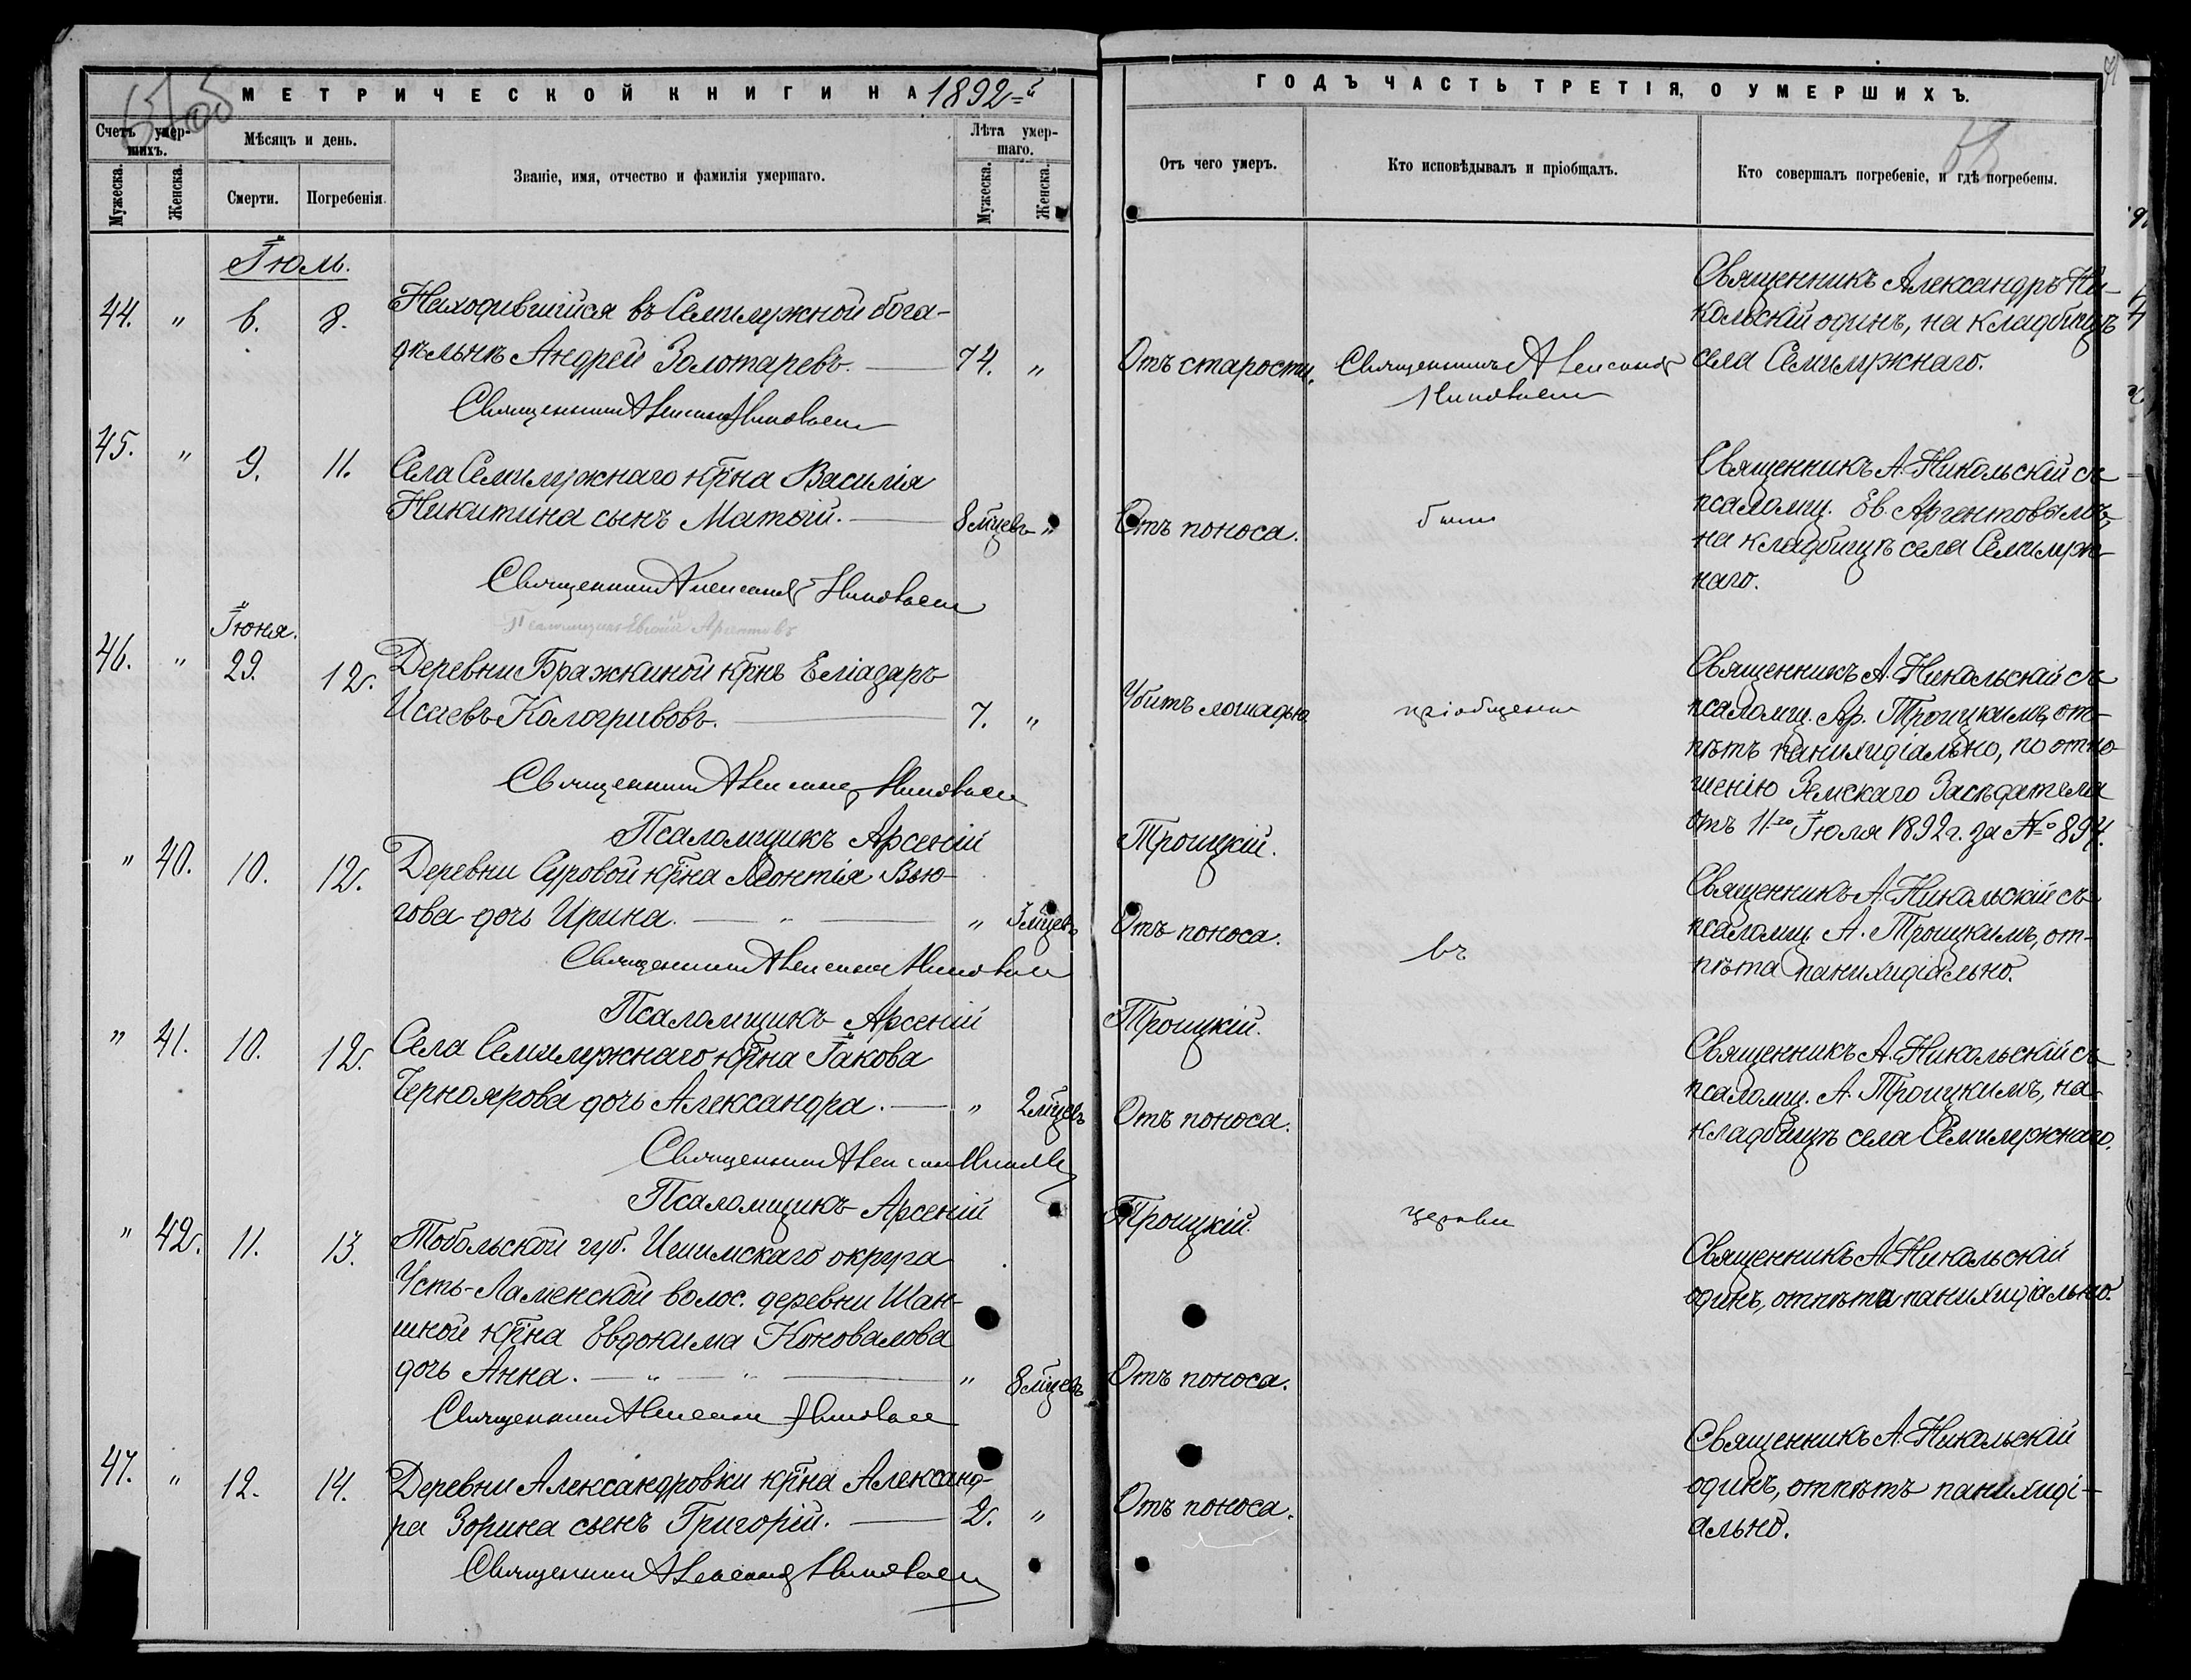 МЕТРИЧЕСКОЙ КНИГИ НА 1892-й
ГОДЪ ЧАСТЬ ТРЕТІЯ, О УМЕРШИХЪ.
Счетъ умер-
шихъ.
Мѣсяцъ и день.
Званіе, имя, отчество и фамилія умершаго.
Лѣта умер-
шаго.
Отъ чего умеръ.
Кто исповѣдывалъ и пріобщалъ.
Кто совершалъ погребеніе, и гдѣ погребены.
Мужеска.
Женска.
Смерти.
Погребенія.
Мужеска.
Женска.
Іюль.
44. " 6. 8.
Находившійся въ Семилужной бога-
дѣльнѣ Андрей Золотаревъ.
74. "
Отъ старости.
Священникъ Александръ
Никольскій
Священникъ Александръ Ни-
кольскій одинъ, на кладбищѣ
села Семилужнаго.
Священникъ Александръ Никольскій
45. " 9. 11.
Села Семилужнаго кр̅на Василія
Никитина сынъ Матѳій.
8 мцевъ "
Отъ поноса.
были
Священникъ А. Никольскій съ
псаломщ. Ев. Аргентовымъ,
на кладбищѣ села Семилуж-
наго.
Священникъ Александръ Никольскій
Псаломщикъ Евгеній Аргентовъ
Іюня.
46. " 29. 12.
Деревни Бражкиной кр̅нъ Еліазаръ
Исаевъ Кологривовъ.
7. "
Убитъ лошадью
пріобщены
Священникъ А. Никольскій съ
псаломщ. Ар. Троицкимъ, от-
пѣтъ панихидіально, по отно-
шенію Земскаго Засѣдателя
отъ 11го Іюля 1892 г. за № 894.
Священникъ Александръ Никольскій
Псаломщикъ Арсеній Троицкій.
" 40. 10. 12.
Деревни Суровой кр̅на Леонтія Вью-
гова дочь Ирина.
" 3 мцевъ
Отъ поноса.
въ
Священникъ А. Никольскій съ
псаломщ. А. Троицкимъ, от-
пѣта панихидіально.
Священникъ Александръ Никольскій
Псаломщикъ Арсеній Троицкій.
" 41. 10. 12.
Села Семилужнаго кр̅на Іакова
Черноярова дочь Александра.
" 2 мцевъ
Отъ поноса.
Священникъ А. Никольскій съ
псаломщ. А. Троицкимъ, на
кладбищѣ села Семилужнаго.
Священникъ Александръ Никольскій
Псаломщикъ Арсеній Троицкій.
церкви
" 42. 11. 13.
Тобольской губ. Ишимскаго округа
Усть-Ламенской волос. деревни Шан-
шной кр̅на Евдокима Коновалова
дочь Анна.
" 8 мцевъ
Отъ поноса.
Священникъ А. Никольскій
одинъ, отпѣта панихидіально.
Священникъ Александръ Никольскій
47. " 12. 14.
Деревни Александровки кр̅на Александ-
ра Зорина сынъ Григорій.
2. "
Отъ поноса.
Священникъ А. Никольскій
одинъ, отпѣтъ панихиді-
ально.
Священникъ Александръ Никольскій